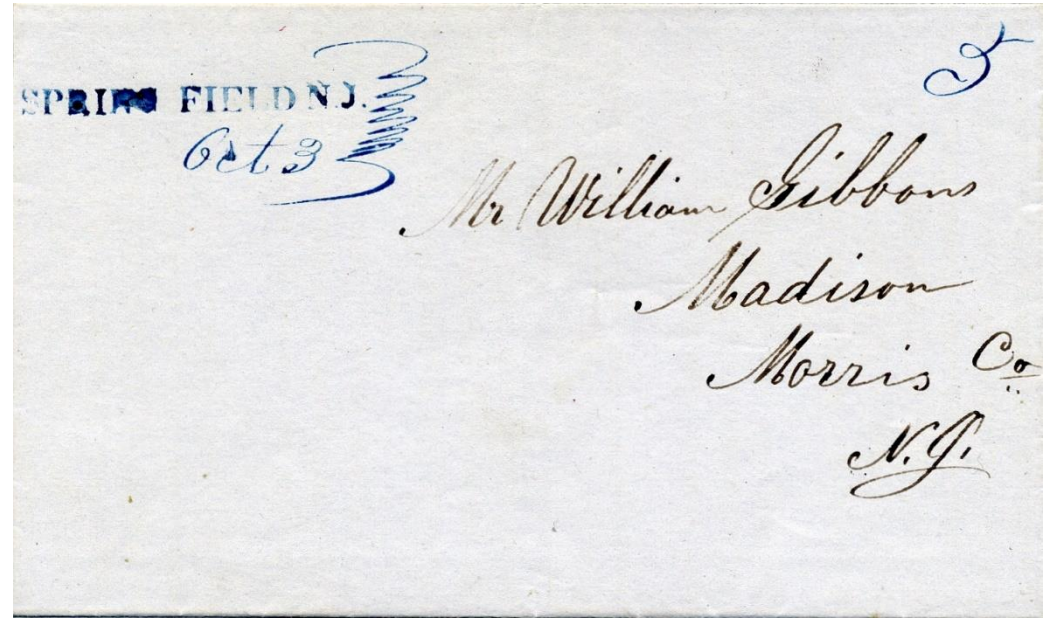 SPRING FIELD N.J.
Oct 3
5
Mr William Gibbons
Madison
Morris Co
N.J.